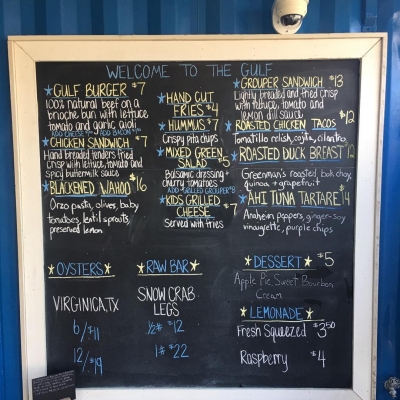 WELCOME TO THE GULF
GULF BURGER $7
100% natural beef on a
brioche bun with lettuce
tomato and garlic aioli
ADD CHEESE ADD BACON
CHICKEN SANDWICH $7
Hand breaded tenders fried
crisp with lettuce, tomato and
spicy buttermilk sauce
BLACKENED WAHOO $16
Orzo pasta, olives, baby
tomatoes, lentil sprouts,
preserved lemon
HAND CUT
FRIES $4
HUMMUS $7
Crispy pita chips
MIXED GREEN
SALAD
Balsamic dressing
cherry tomatoes
ADD GRILLED GROUPER $8
KIDS GRILLED
CHEESE $7
Served with fries
GROUPER SANDWICH $13
Lightly breaded and fried crisp
with lettuce, tomato and
lemon dill sauce
ROASTED CHICKEN TACOS $12
Tomatillo relish, cojita, cilantro
ROASTED DUCK BREAST $12
Greenman's roasted, bok choy,
quinoa + grapefruit
AHI TUNA TARTARE $14
Anaheim peppers, ginger-soy
vinaigrette, purple chips
OYSTERS
VIRGINICA, TX
6/$11
12/$19
RAW BAR
SNOW CRAB
LEGS
1/2# $12
1# $22
DESSERT $5
Apple Pie, Sweet Bourbon
Cream
LEMONADE
Fresh Squeezed $3.50
Raspberry $4